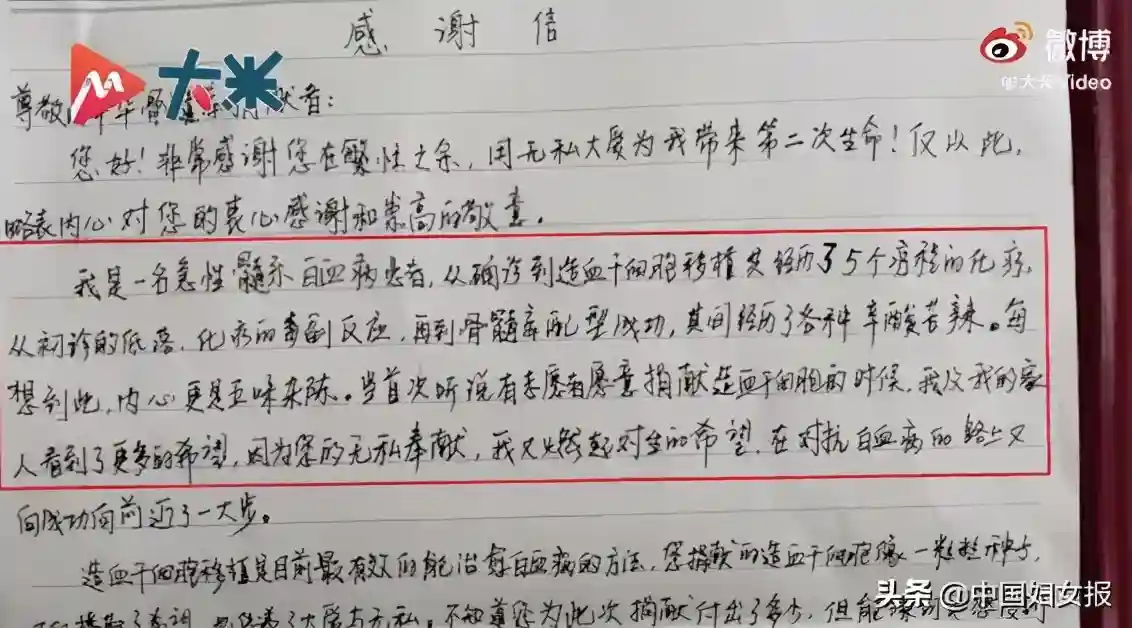 感谢信
大米
微博
@大米Video
尊敬
献者：
您好！非常感谢您在繁忙之余，用无私大爱为我带来第二次生命！仅以此，
略表内心对您的衷心感谢和崇高的敬意。
我是一名急性髓系白血病患者，从确诊到造血干细胞移植共经历了5个疗程的化疗，
从初诊的低落、化疗的毒副反应，再到骨髓库配型成功，其间经历了各种辛酸苦辣。每
想到此，内心更是五味杂陈。当首次听说有志愿者愿意捐献造血干细胞的时候，我及我的家
人看到了更多的希望，因为您的无私奉献，我又燃起对生的希望，在对抗白血病的路上又
向成功向前迈了一大步。
造血干细胞移植是目前最有效的能治愈白血病的方法，您捐献的造血干细胞像一粒粒种子，
了大爱与无私。不知道您为此次捐献付出了多少，但能
头条 @中国妇女报